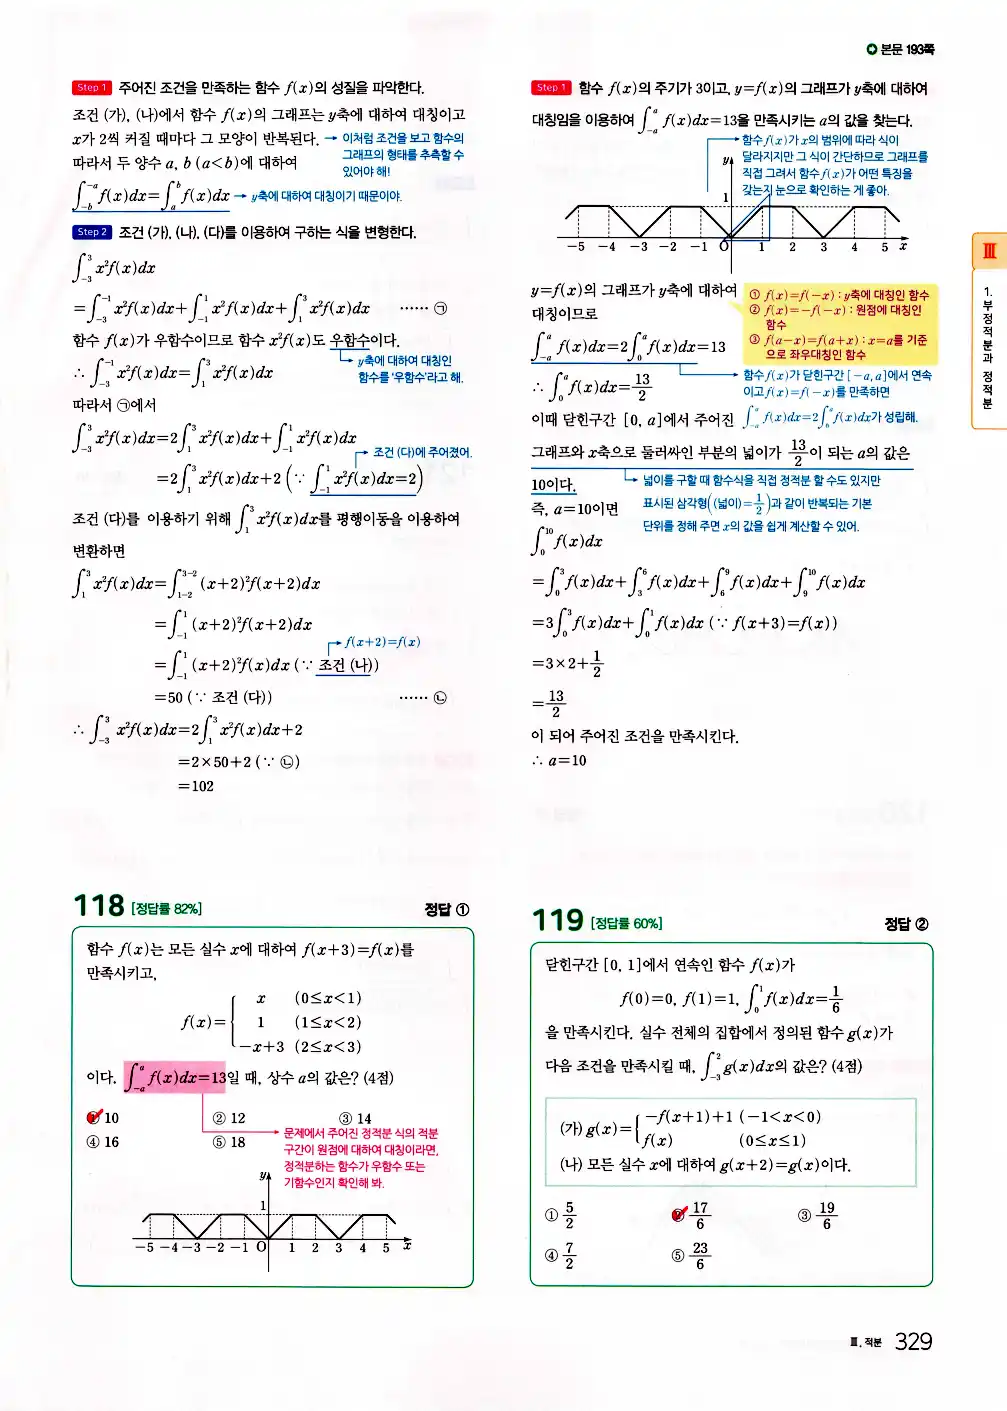 본문 193쪽
Step 1 주어진 조건을 만족하는 함수 f(x)의 성질을 파악한다.
조건 (가), (나)에서 함수 f(x)의 그래프는 y축에 대하여 대칭이고
x가 2씩 커질 때마다 그 모양이 반복된다. → 이처럼 조건을 보고 함수의
그래프의 형태를 추측할 수
있어야 해!
따라서 두 양수 a, b (a<b)에 대하여
∫_{-b}^{-a} f(x)dx=∫_a^b f(x)dx → y축에 대하여 대칭이기 때문이야.
Step 2 조건 (가), (나), (다)를 이용하여 구하는 식을 변형한다.
∫_{-3}^3 x²f(x)dx
=∫_{-3}^{-1} x²f(x)dx+∫_{-1}^1 x²f(x)dx+∫_1^3 x²f(x)dx …… ㉠
함수 f(x)가 우함수이므로 함수 x²f(x)도 우함수이다.
y축에 대하여 대칭인
함수를 '우함수'라고 해.
∴ ∫_{-3}^{-1} x²f(x)dx=∫_1^3 x²f(x)dx
따라서 ㉠에서
∫_{-3}^3 x²f(x)dx=2∫_1^3 x²f(x)dx+∫_{-1}^1 x²f(x)dx
조건 (다)에 주어졌어.
=2∫_1^3 x²f(x)dx+2 (∵ ∫_{-1}^1 x²f(x)dx=2)
조건 (다)를 이용하기 위해 ∫_1^3 x²f(x)dx를 평행이동을 이용하여
변환하면
∫_1^3 x²f(x)dx=∫_{1-2}^{3-2} (x+2)²f(x+2)dx
=∫_{-1}^1 (x+2)²f(x+2)dx
f(x+2)=f(x)
=∫_{-1}^1 (x+2)²f(x)dx (∵ 조건 (나))
=50 (∵ 조건 (다)) …… ㉡
∴ ∫_{-3}^3 x²f(x)dx=2∫_1^3 x²f(x)dx+2
=2×50+2 (∵ ㉡)
=102
118 [정답률 82%] 정답 ①
함수 f(x)는 모든 실수 x에 대하여 f(x+3)=f(x)를
만족시키고,
x (0≤x<1)
f(x)={ 1 (1≤x<2)
-x+3 (2≤x<3)
이다. ∫_{-a}^a f(x)dx=13일 때, 상수 a의 값은? (4점)
① 10 ② 12 ③ 14
④ 16 ⑤ 18
문제에서 주어진 정적분 식의 적분
구간이 원점에 대하여 대칭이라면,
정적분하는 함수가 우함수 또는
기함수인지 확인해 봐.
y
1
-5 -4 -3 -2 -1 O 1 2 3 4 5 x
Step 1 함수 f(x)의 주기가 3이고, y=f(x)의 그래프가 y축에 대하여
대칭임을 이용하여 ∫_{-a}^a f(x)dx=13을 만족시키는 a의 값을 찾는다.
함수 f(x)가 x의 범위에 따라 식이
달라지지만 그 식이 간단하므로 그래프를
직접 그려서 함수 f(x)가 어떤 특징을
갖는지 눈으로 확인하는 게 좋아.
y
1
-5 -4 -3 -2 -1 O 1 2 3 4 5 x
y=f(x)의 그래프가 y축에 대하여
대칭이므로
① f(x)=f(-x) : y축에 대칭인 함수
② f(x)=-f(-x) : 원점에 대칭인
함수
③ f(a-x)=f(a+x) : x=a를 기준
으로 좌우대칭인 함수
∫_{-a}^a f(x)dx=2∫_0^a f(x)dx=13
함수 f(x)가 닫힌구간 [-a, a]에서 연속
이고 f(x)=f(-x)를 만족하면
∫_{-a}^a f(x)dx=2∫_0^a f(x)dx가 성립해.
∴ ∫_0^a f(x)dx=13/2
이때 닫힌구간 [0, a]에서 주어진
그래프와 x축으로 둘러싸인 부분의 넓이가 13/2이 되는 a의 값은
10이다.
넓이를 구할 때 함수식을 직접 정적분 할 수도 있지만
표시된 삼각형((넓이)=1/2)과 같이 반복되는 기본
단위를 정해 주면 x의 값을 쉽게 계산할 수 있어.
즉, a=10이면
∫_0^10 f(x)dx
=∫_0^3 f(x)dx+∫_3^6 f(x)dx+∫_6^9 f(x)dx+∫_9^10 f(x)dx
=3∫_0^3 f(x)dx+∫_0^1 f(x)dx (∵ f(x+3)=f(x))
=3×2+1/2
=13/2
이 되어 주어진 조건을 만족시킨다.
∴ a=10
119 [정답률 60%] 정답 ②
닫힌구간 [0, 1]에서 연속인 함수 f(x)가
f(0)=0, f(1)=1, ∫_0^1 f(x)dx=1/6
을 만족시킨다. 실수 전체의 집합에서 정의된 함수 g(x)가
다음 조건을 만족시킬 때, ∫_{-3}^2 g(x)dx의 값은? (4점)
(가) g(x)={ -f(x+1)+1 (-1<x<0)
f(x) (0≤x≤1)
(나) 모든 실수 x에 대하여 g(x+2)=g(x)이다.
① 5/2 ② 17/6 ③ 19/6
④ 7/2 ⑤ 23/6
Ⅲ
1. 부정적분과 정적분
Ⅲ. 적분 329